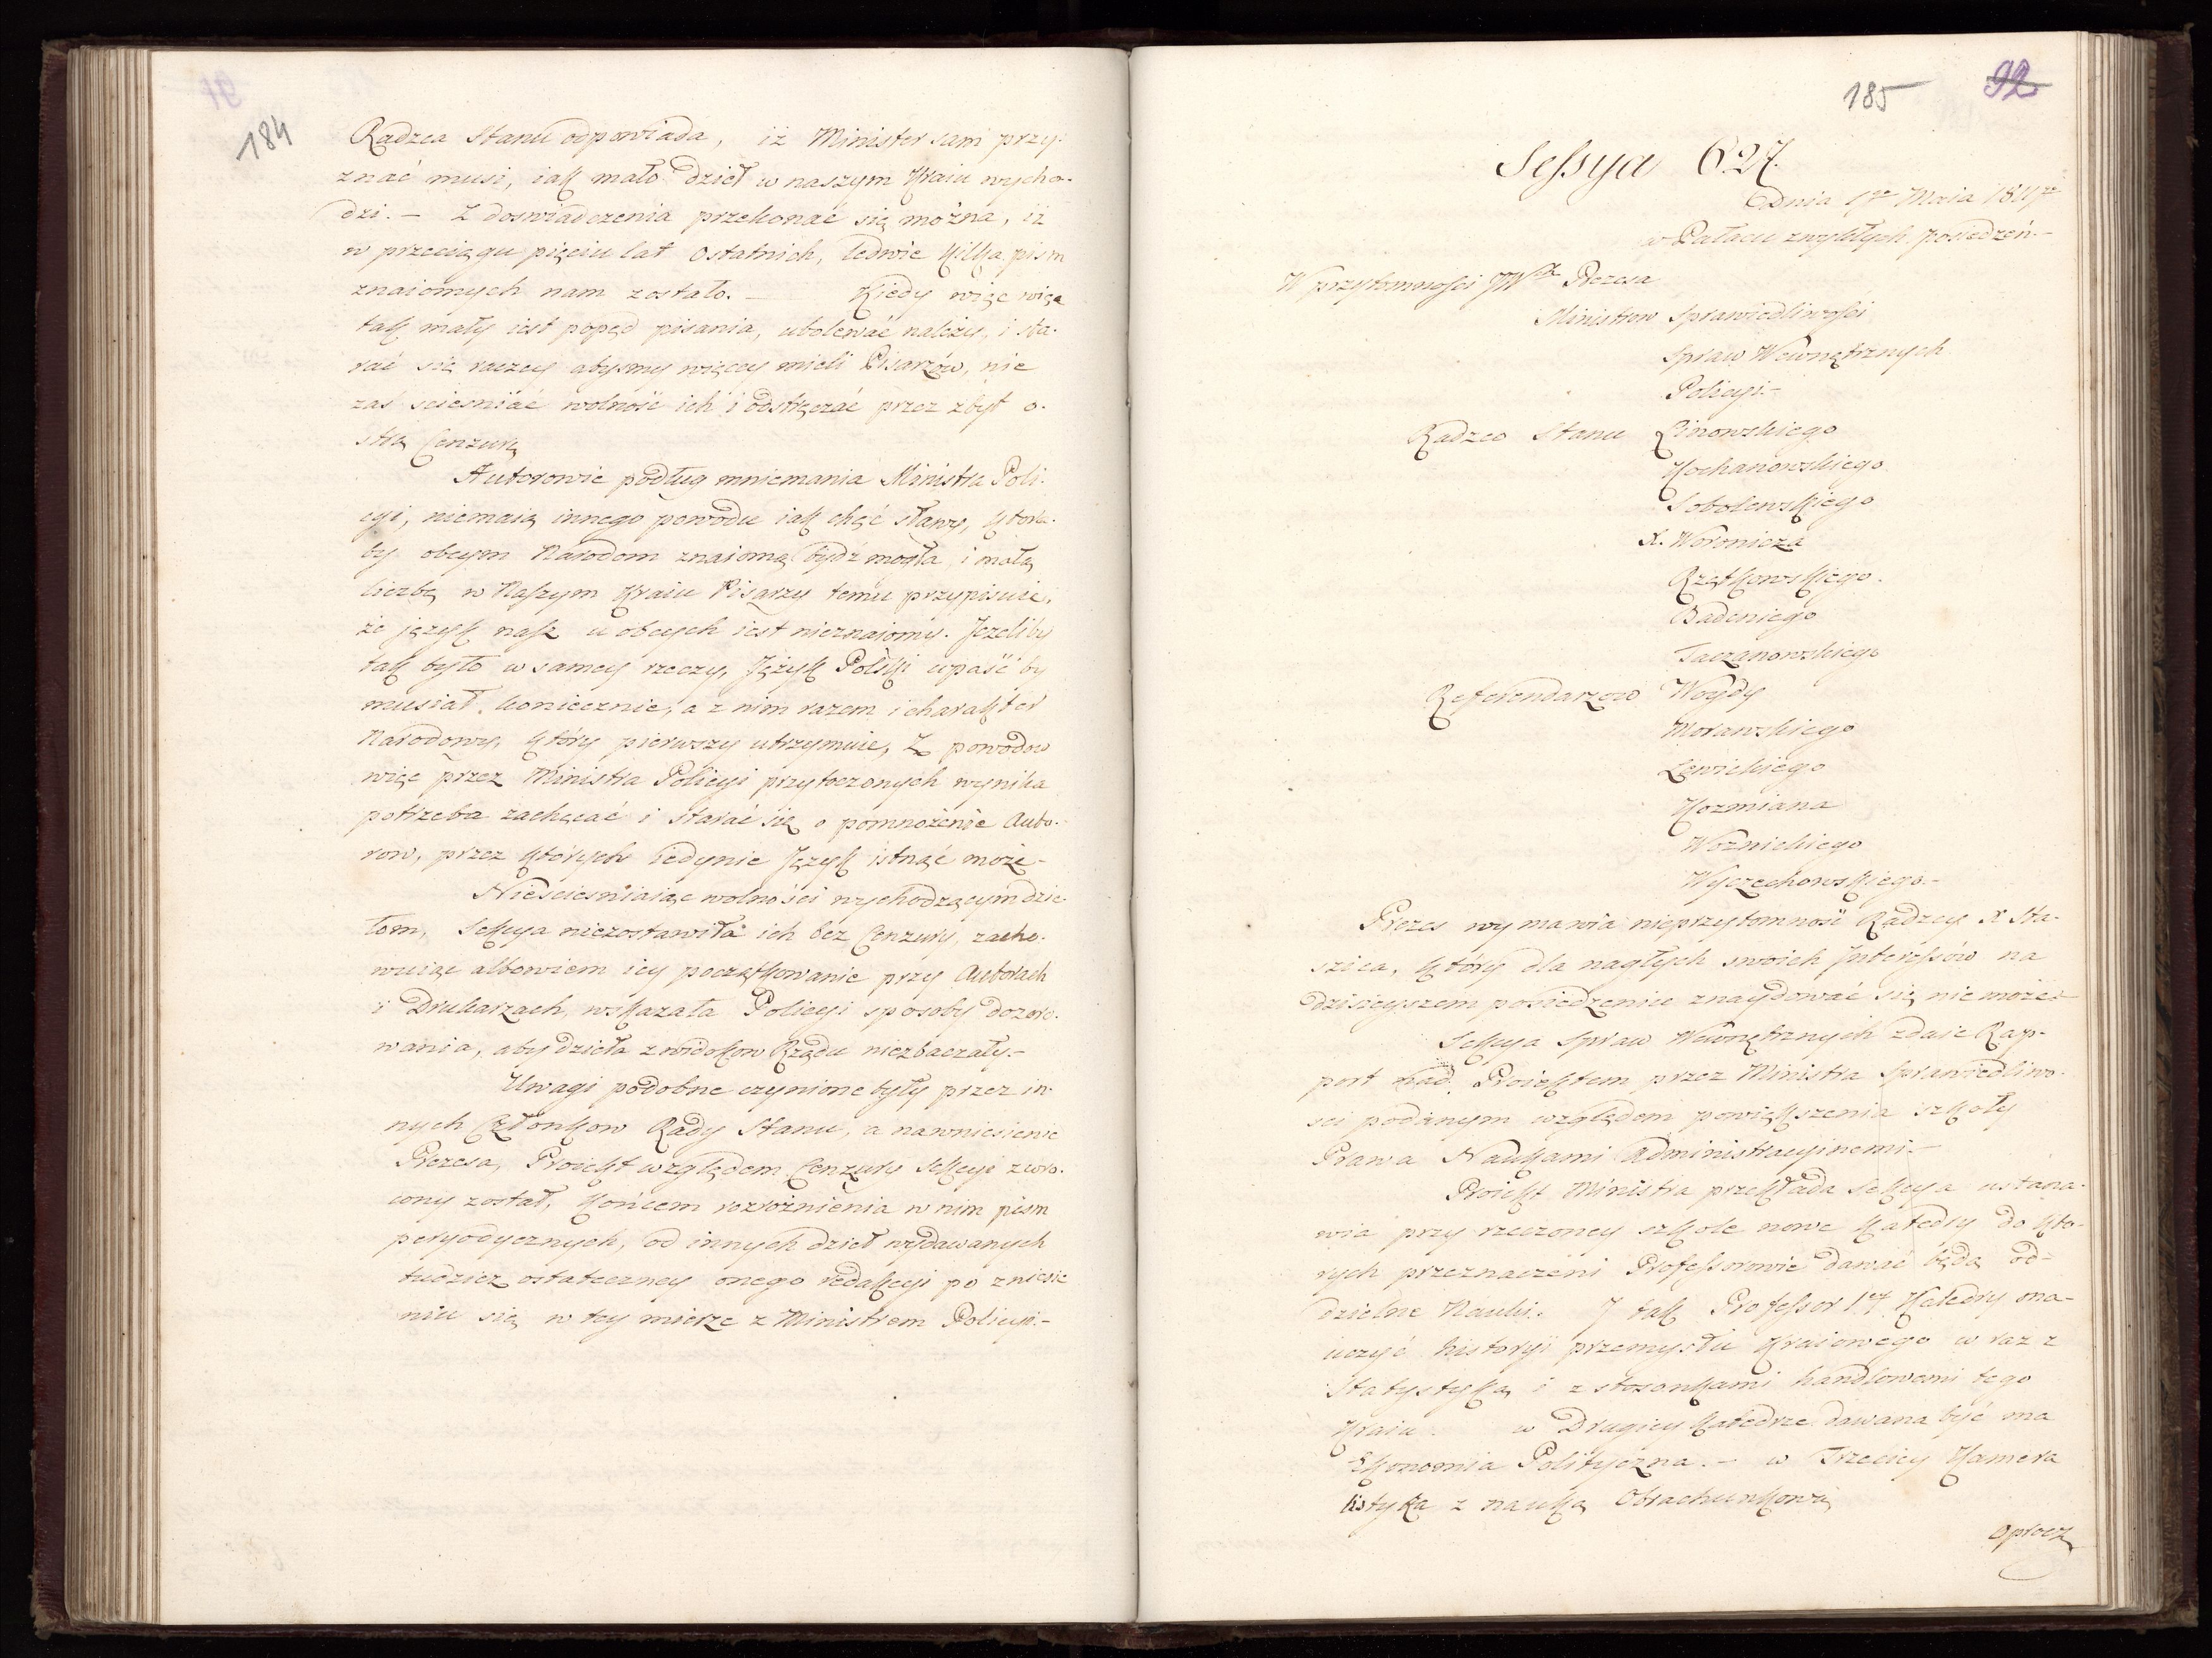 184
Radzca Stanu odpowiada, iż Minister sam przy-
znać musi, iak mało dzieł w naszym Kraiu wycho-
dzi. – Z doswiadczenia przekonać się można, iż
w przeciągu pięciu lat ostatnich, ledwie kilka pism
znaiomych nam zostało. – Kiedy więc więc
tak mały iest popęd pisania, ubolewać należy, i sta-
rać się raczey abysmy więcey mieli Pisarzów, nie
zaś sciesniać wolność ich i odstręczać przez zbyt o-
strą Cenzurę
Autorowie podług mniemania Ministra Poli-
cyi, niemaią innego powodu iak chęć sławy, która-
by obcym Narodom znaiomą bydź mogła, i małą
liczbę w Naszym Kraiu Pisarzy temu przypisuie,
że język nasz u obcych iest nieznaiomy. Jeżeliby
tak było w samey rzeczy, Język Polski upaść by
musiał koniecznie, a z nim razem i charakter
Narodowy, który pierwszy utrzymuie, Z powodow
więc przez Ministra Policyi przytoczonych wynika
potrzeba zachęcać i starać się o pomnożenie Auto-
row, przez których iedynie Język istnąć może –
Niesciesniaiąc wolności wychodzącym dzie-
łom, Sekcya niezostawiła ich bez Cenzury, zacho-
wuiąc albowiem iey początkowanie przy Autorach
i Drukarzach, wskazała Policyi sposoby dozoro-
wania, aby dzieła z widokow Rządu niezbaczały. –
Uwagi podobne czynione były przez in-
nych Członkow Rady Stanu, a nawniesienie
Prezesa, Proiekt względem Cenzury Sekcyi zwro-
cony został, końcem rozróżnienia w nim pism
peryodycznych, od innych dzieł wydawanych
tudzież ostateczney onego redakcyi po zniesie
niu się w tey mierze z Ministrem Policyi. –
185 92
Sessya 627.
Dnia 1go Maia 1811
w Pałacu zwykłych posiedzeń –
W przytomności JW Prezesa
Ministrow Sprawiedliwości
Spraw Wewnętrznych
Policyi. –
Radzco Stanu Linowskiego
Kochanowskiego
Sobolewskiego
X. Woronicza
Rzątkowskiego.
Badeniego
Taczanowskiego
Referendarzow Woydy
Morawskiego
Lewickiego
Kozmiana
Woznickiego
Wyczechowskiego. –
Prezes wymawia nieprzytomność Radzcy X Sta-
szica, który dla nagłych swoich Interessów na
dzisieyszem posiedzeniu znaydować się nie może –
Sekcya Spraw Wewnętrznych zdaie Rap-
port nad Proiektem przez Ministra Sprawiedliwo-
sci podanym względem powiększenia szkoły
Prawa Naukami Administracyinemi. –
Proiekt Ministra przekłada Sekcya ustana-
wia przy rzeczoney szkole nowe Katedry do któ-
rych przeznaczeni Professorowie dawać będą od-
dzielne Nauki. I tak Professor 1ey Katedry ma
uczyć historyi przemysłu Kraiowego w raz z
Statystyką i z stosonkami handlowemi tego
Kraiu. w Drugiey Katedrze dawana być ma
Ekonomia Polityczna. – w Trzeciey Kamera
listyka z nauką Obrachunkową
oprocz